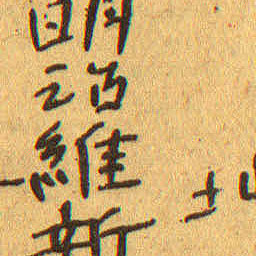 明治維新
土